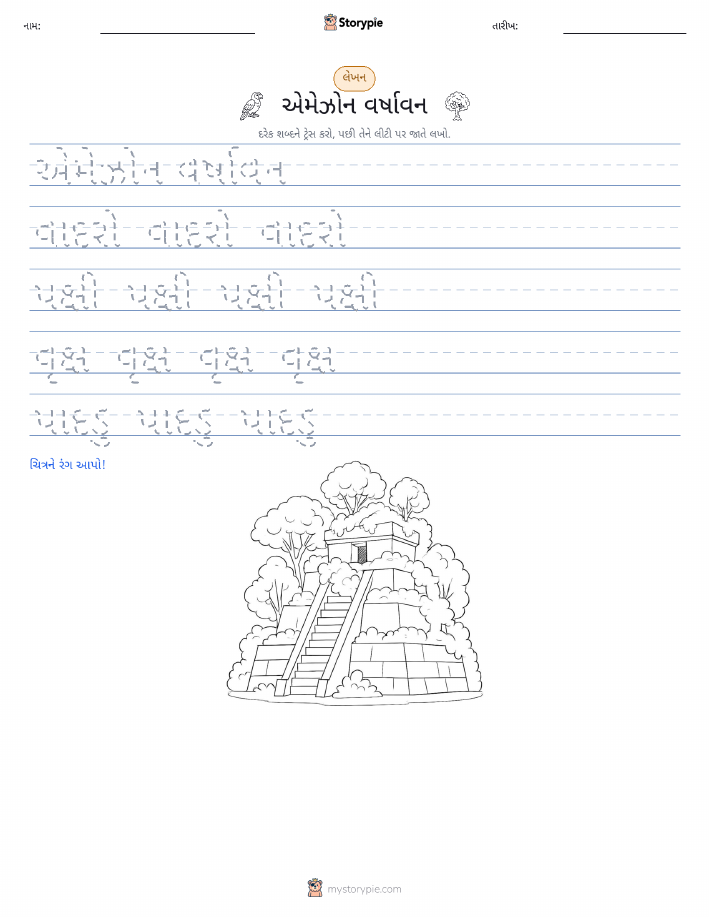 નામ:
Storypie
તારીખ:
લેખન
એમેઝોન વર્ષાવન
દરેક શબ્દને ટ્રેસ કરો, પછી તેને લીટી પર જાતે લખો.
એમેઝોન વર્ષાવન
વાદરો વાદરો વાદરો
પક્ષી પક્ષી પક્ષી પક્ષી
વૃક્ષ વૃક્ષ વૃક્ષ વૃક્ષ
પાદડુ પાદડુ પાદડુ
ચિત્રને રંગ આપો!
mystorypie.com